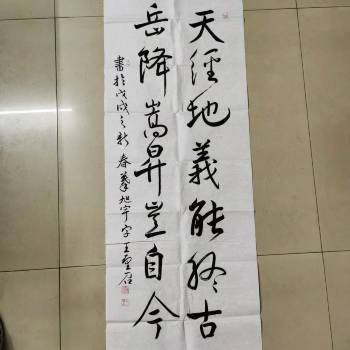 天經地義能終古
岳降嵩昇豈自今
書於戊戌之新春 旭宇字 王聖启